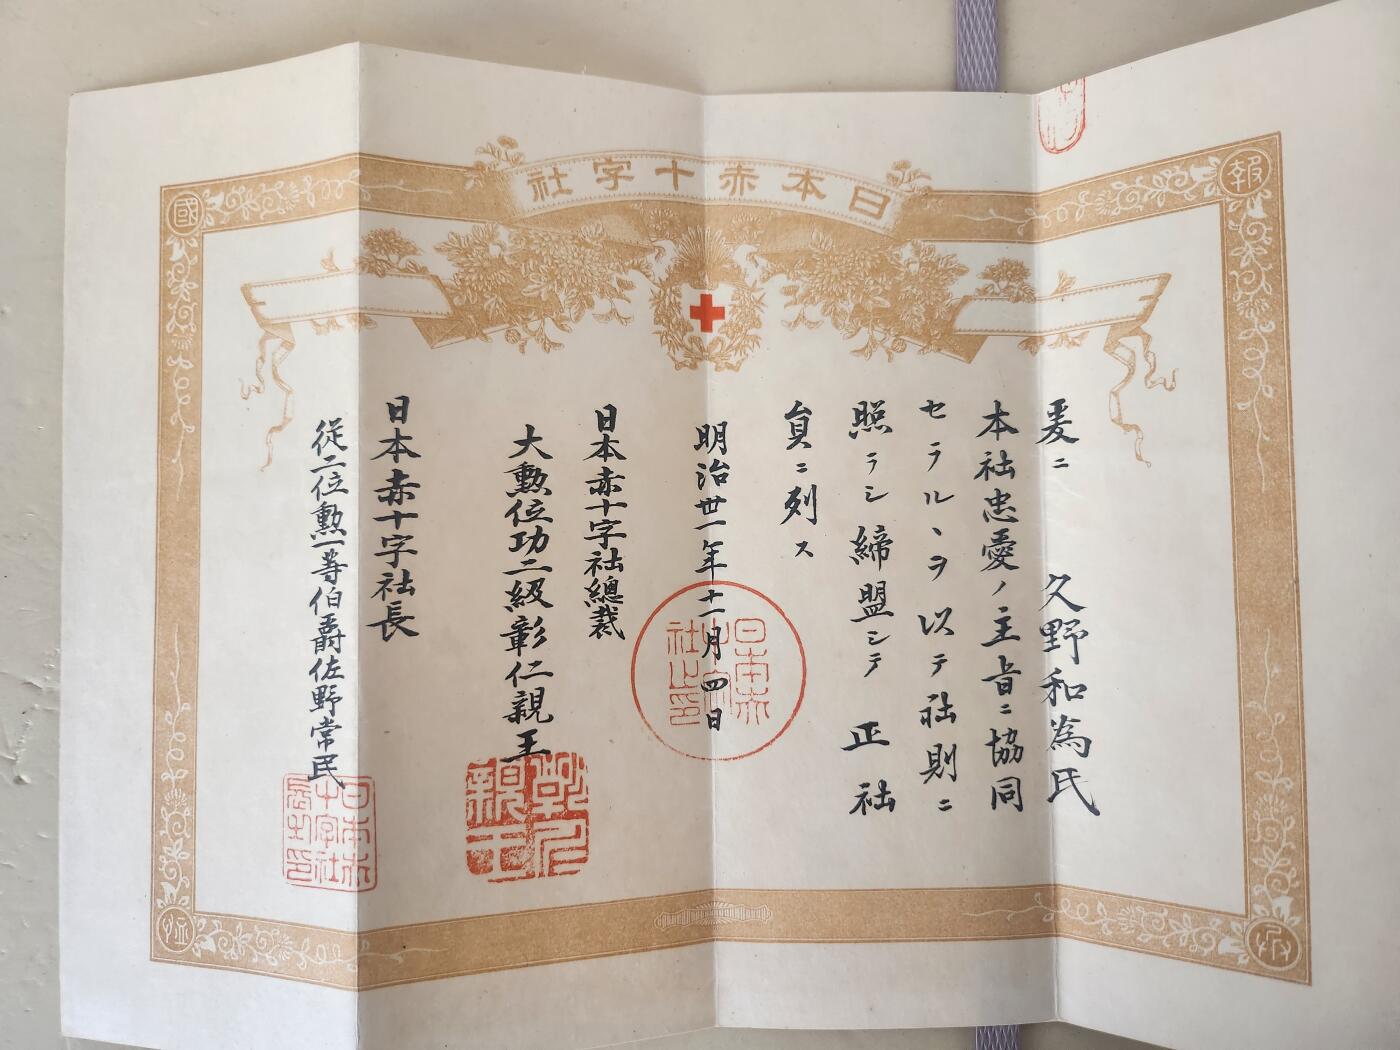 日本赤十字社
報
國
恤
爰ニ
久野和為氏
本社忠愛ノ主旨ニ協同
セラルヽヲ以テ社則ニ
照ラシ締盟シテ正社
員ニ列ス
明治卅一年十一月四日
日本赤十字社之印
日本赤十字社總裁
大勲位功二級彰仁親王
彰仁親王
日本赤十字社長
従二位勲一等伯爵佐野常民
日本赤十字社長之印